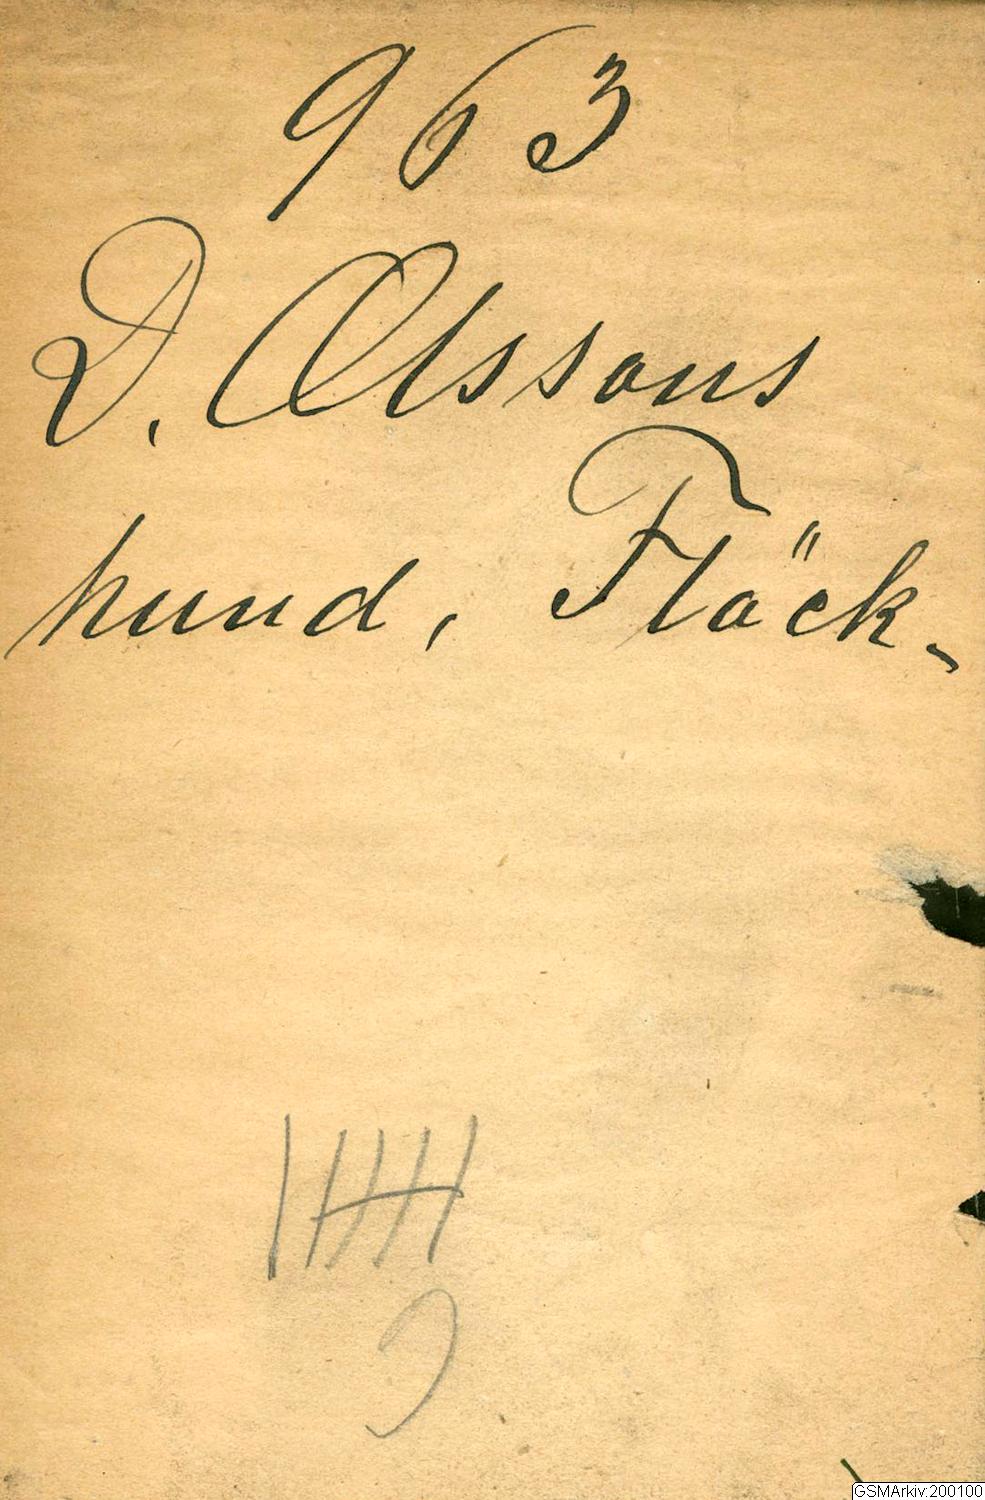 963
D. Olssons
hund, Fläck.
GSMArkiv:200100